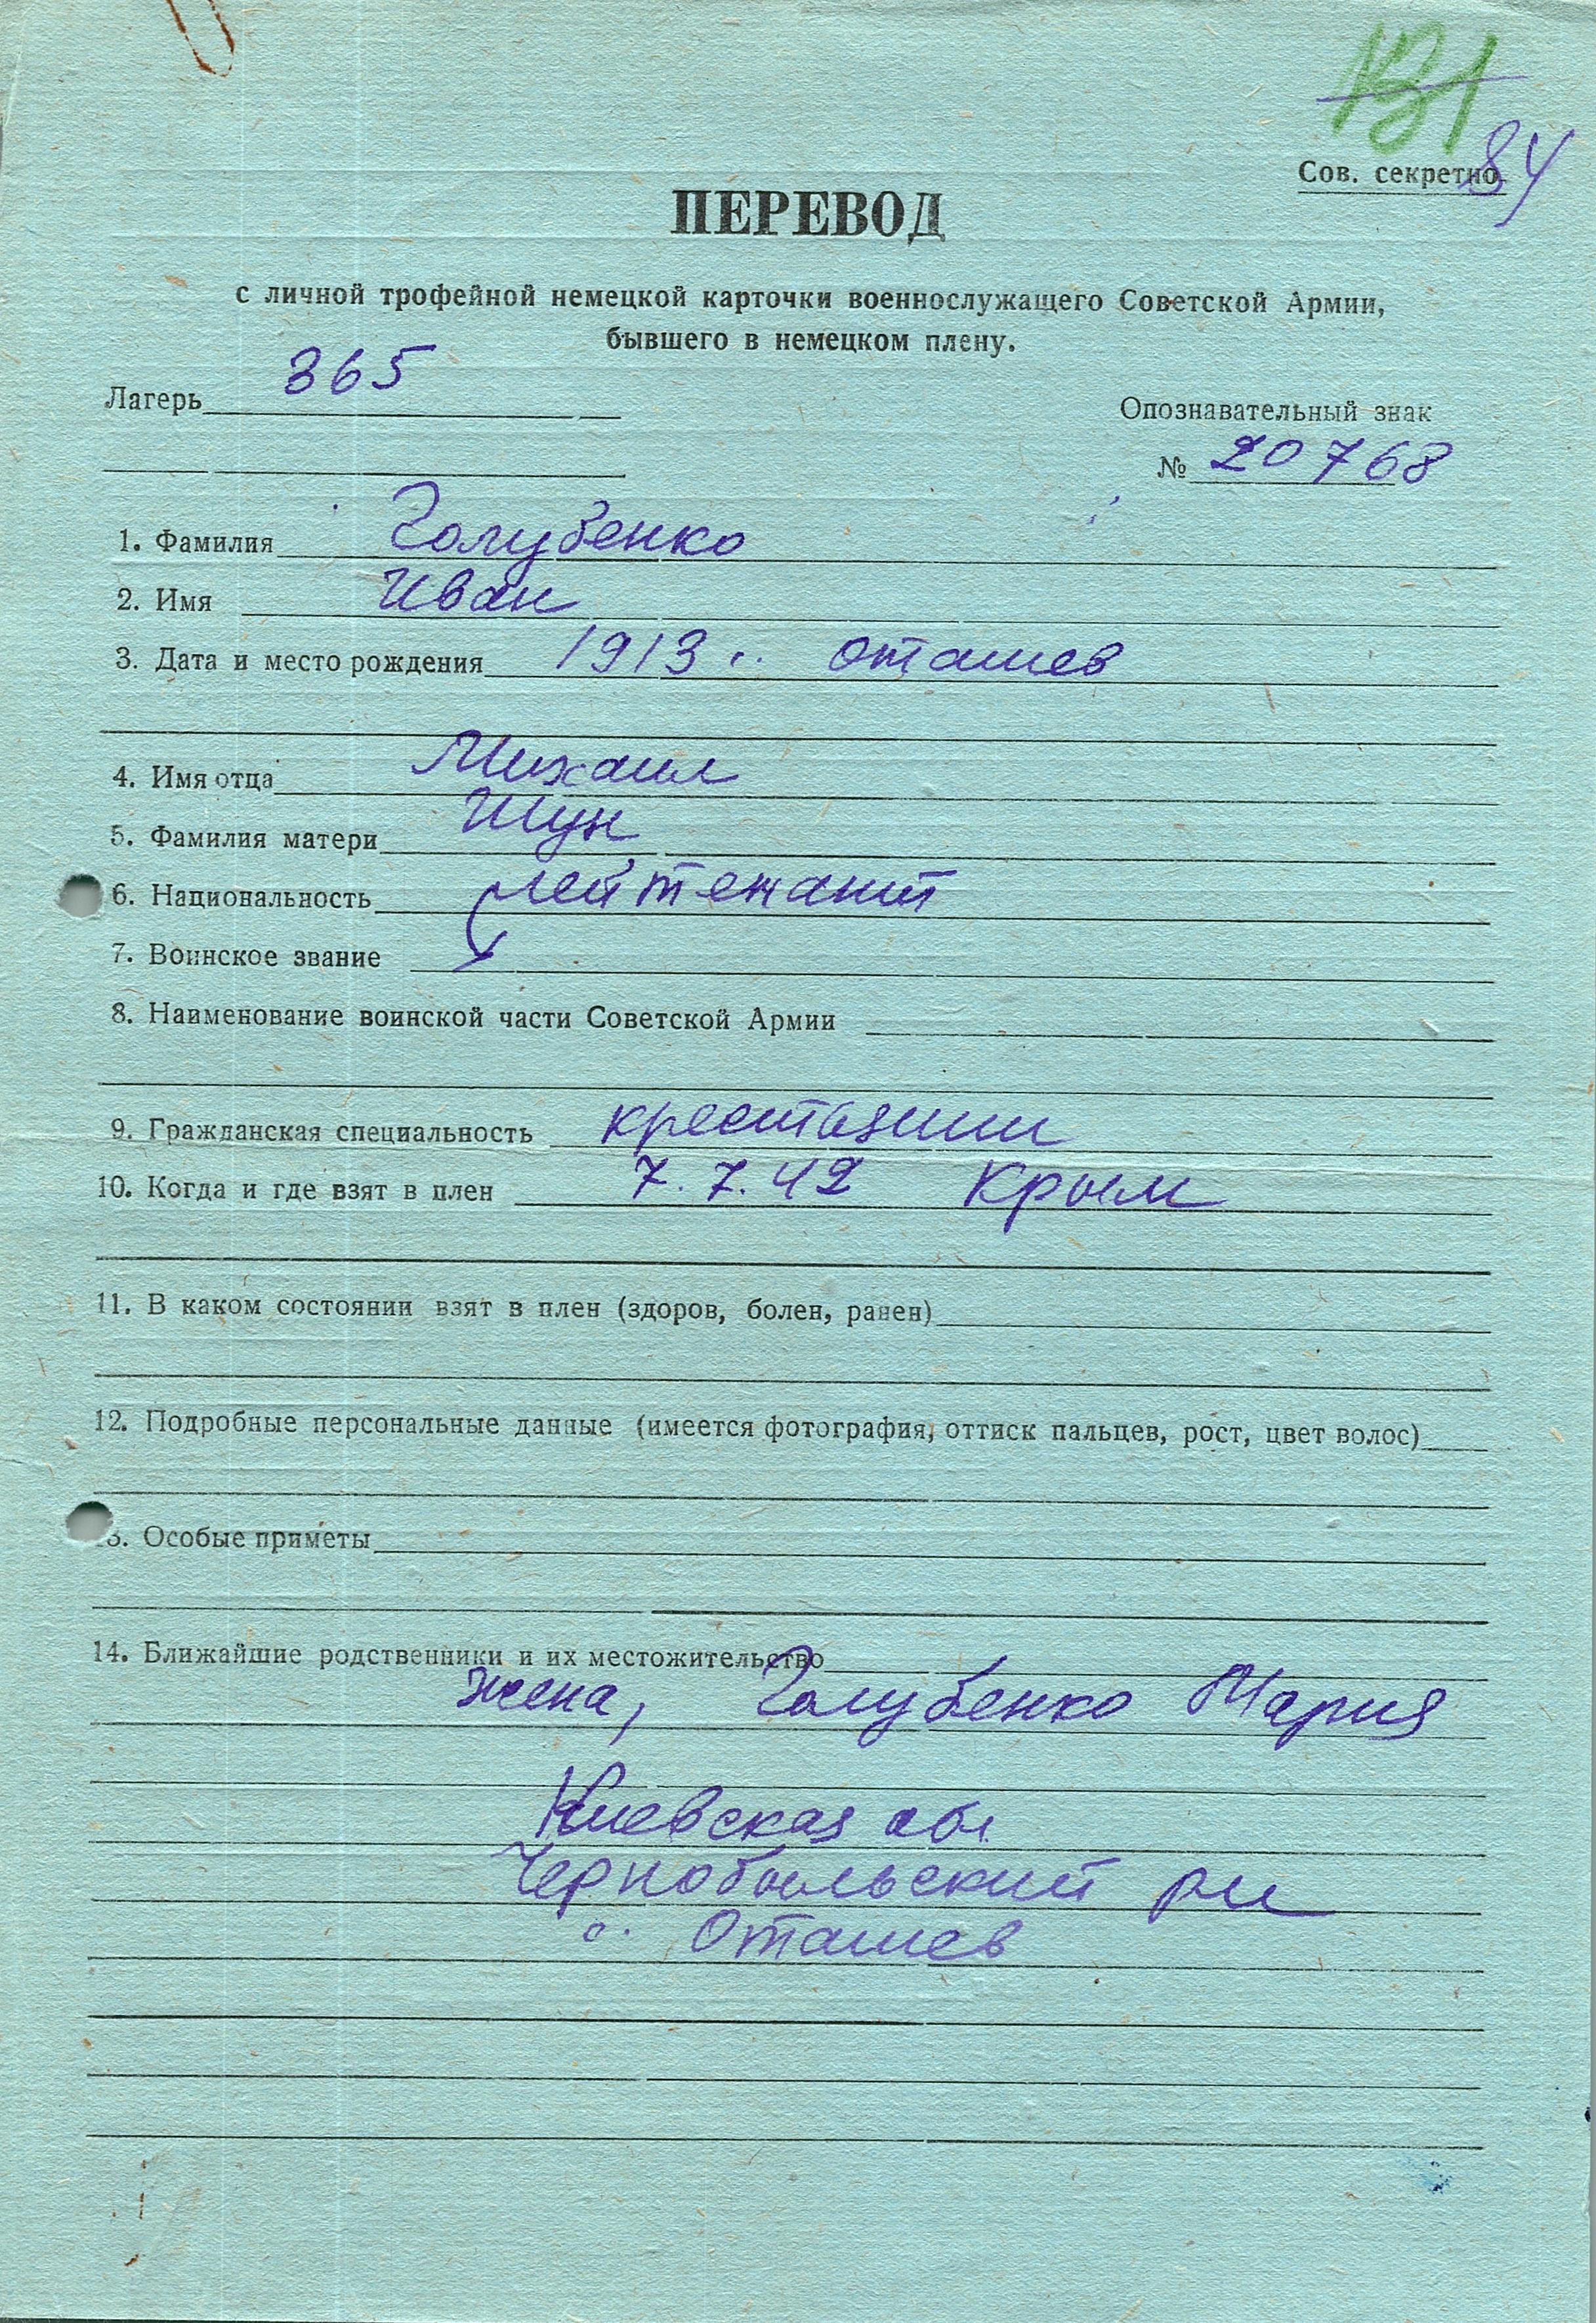 131
84
Сов. секретно.
ПЕРЕВОД
с личной трофейной немецкой карточки военнослужащего Советской Армии,
бывшего в немецком плену.
Лагерь 365
Опознавательный знак
№ 20768
1. Фамилия Голубенко
2. Имя Иван
3. Дата и место рождения 1913 г. Оташев
4. Имя отца Михаил
5. Фамилия матери Шун
6. Национальность лейтенант
7. Воинское звание
8. Наименование воинской части Советской Армии
9. Гражданская специальность крестьянин
10. Когда и где взят в плен 7.7.42 Крым
11. В каком состоянии взят в плен (здоров, болен, ранен)
12. Подробные персональные данные (имеется фотография, оттиск пальцев, рост, цвет волос)
3. Особые приметы
14. Ближайшие родственники и их местожительство
жена, Голубенко Мария
Киевская обл
Чернобыльский рн
с. Оташев